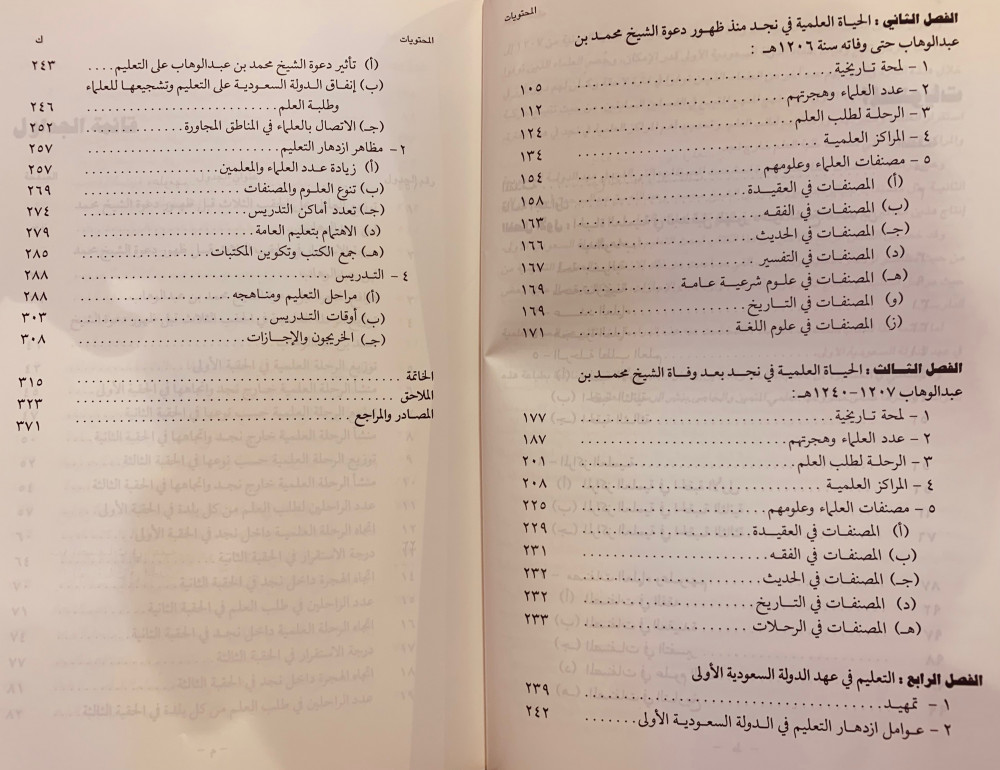 المحتويات
الفصل الثاني : الحياة العلمية في نجد منذ ظهور دعوة الشيخ محمد بن
عبدالوهاب حتى وفاته سنة ١٢٠٦هـ :
١ - لمحة تاريخية ........ ١٠٥
٢ - عدد العلماء وهجرتهم ........ ١١٢
٣ - الرحلة لطلب العلم ........ ١٢٤
٤ - المراكز العلمية ........ ١٣٤
٥ - مصنفات العلماء وعلومهم ........ ١٥٤
(أ) المصنفات في العقيدة ........ ١٥٨
(ب) المصنفات في الفقه ........ ١٦٣
(جـ) المصنفات في الحديث ........ ١٦٦
(د) المصنفات في التفسير ........ ١٦٧
(هـ) المصنفات في علوم شرعية عامة ........ ١٦٩
(و) المصنفات في التاريخ ........ ١٦٩
(ز) المصنفات في علوم اللغة ........ ١٧١
الفصل الثالث : الحياة العلمية في نجد بعد وفاة الشيخ محمد بن
عبدالوهاب ١٢٠٧-١٢٤٠هـ:
١ - لمحة تاريخية ........ ١٧٧
٢ - عدد العلماء وهجرتهم ........ ١٨٧
٣ - الرحلة لطلب العلم ........ ٢٠١
٤ - المراكز العلمية ........ ٢٠٨
٥ - مصنفات العلماء وعلومهم ........ ٢٢٥
(أ) المصنفات في العقيدة ........ ٢٢٩
(ب) المصنفات في الفقه ........ ٢٣١
(جـ) المصنفات في الحديث ........ ٢٣٢
(د) المصنفات في التاريخ ........ ٢٣٢
(هـ) المصنفات في الرحلات ........ ٢٣٣
الفصل الرابع : التعليم في عهد الدولة السعودية الأولى
١ - تمهيد ........ ٢٣٩
٢ - عوامل ازدهار التعليم في الدولة السعودية الأولى ........ ٢٤٢
المحتويات ك
(أ) تأثير دعوة الشيخ محمد بن عبدالوهاب على التعليم .... ٢٤٣
(ب) إنفاق الدولة السعودية على التعليم وتشجيعها للعلماء
وطلبة العلم ........ ٢٤٦
(جـ) الاتصال بالعلماء في المناطق المجاورة ........ ٢٥٢
٢ - مظاهر ازدهار التعليم ........ ٢٥٧
(أ) زيادة عدد العلماء والمعلمين ........ ٢٥٧
(ب) تنوع العلوم والمصنفات ........ ٢٦٩
(جـ) تعدد أماكن التدريس ........ ٢٧٤
(د) الاهتمام بتعليم العامة ........ ٢٧٩
(هـ) جمع الكتب وتكوين المكتبات ........ ٢٨٥
٤ - التدريس ........ ٢٨٨
(أ) مراحل التعليم ومناهجه ........ ٢٨٨
(ب) أوقات التدريس ........ ٣٠٣
(جـ) الخريجون والإجازات ........ ٣٠٨
الخاتمة ........ ٣١٥
الملاحق ........ ٣٢٣
المصادر والمراجع ........ ٣٧١